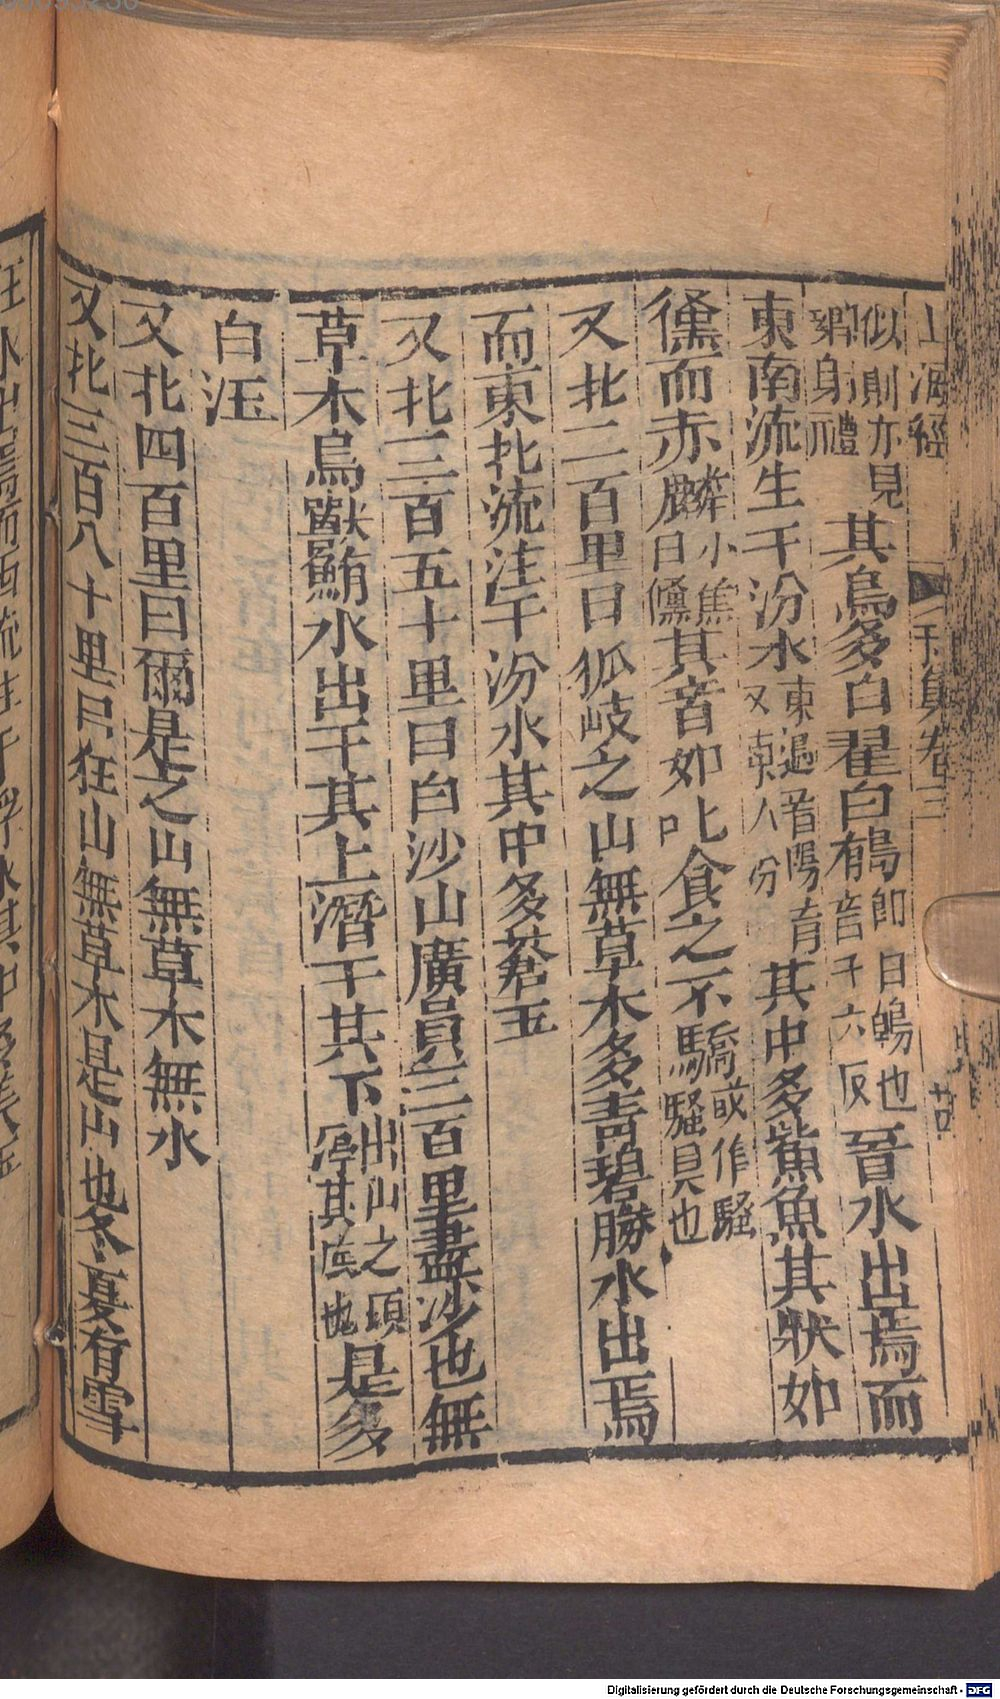 山海經 利集卷三 廿
似則亦見鄴身禮其鳥多白翟白鵺即白鵺也音于六反晉水出焉而
東南流生于汾水東過晉陽南又東入汾其中多鮆魚其狀如
儵而赤鱗小鱗曰儵其音如叱食之不驕驕或作騷騷臭也
又北二百里曰狐岐之山無草木多青碧勝水出焉
而東北流注于汾水其中多蒼玉
又北三百五十里曰白沙山廣員三百里盡沙也無
草木鳥獸鮪水出于其上潛于其下出山之頂停其底也是多
白玉
又北四百里曰爾是之山無草木無水
又北三百八十里曰狂山無草木是山也冬夏有雪
狂水出焉而西流注于浮水其中多美玉
Digitalisierung gefördert durch die Deutsche Forschungsgemeinschaft - DFG